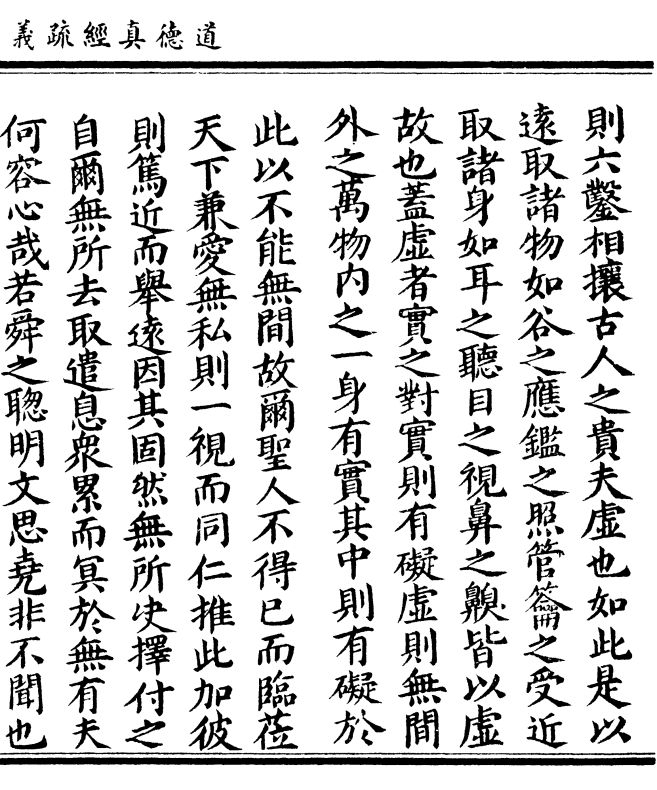 道德真經疏義
則六鑿相攘古人之貴夫虛也如此是以
遠取諸物如谷之應鑑之照管籥之受近
取諸身如耳之聽目之視鼻之齅皆以虛
故也蓋虛者實之對實則有礙虛則無間
外之萬物內之一身有實其中則有礙於
此以不能無間故爾聖人不得已而臨莅
天下兼愛無私則一視而同仁推此加彼
則篤近而舉遠因其固然無所決擇付之
自爾無所去取遣息衆累而冥於無有夫
何容心哉若舜之聦明文思堯非不聞也